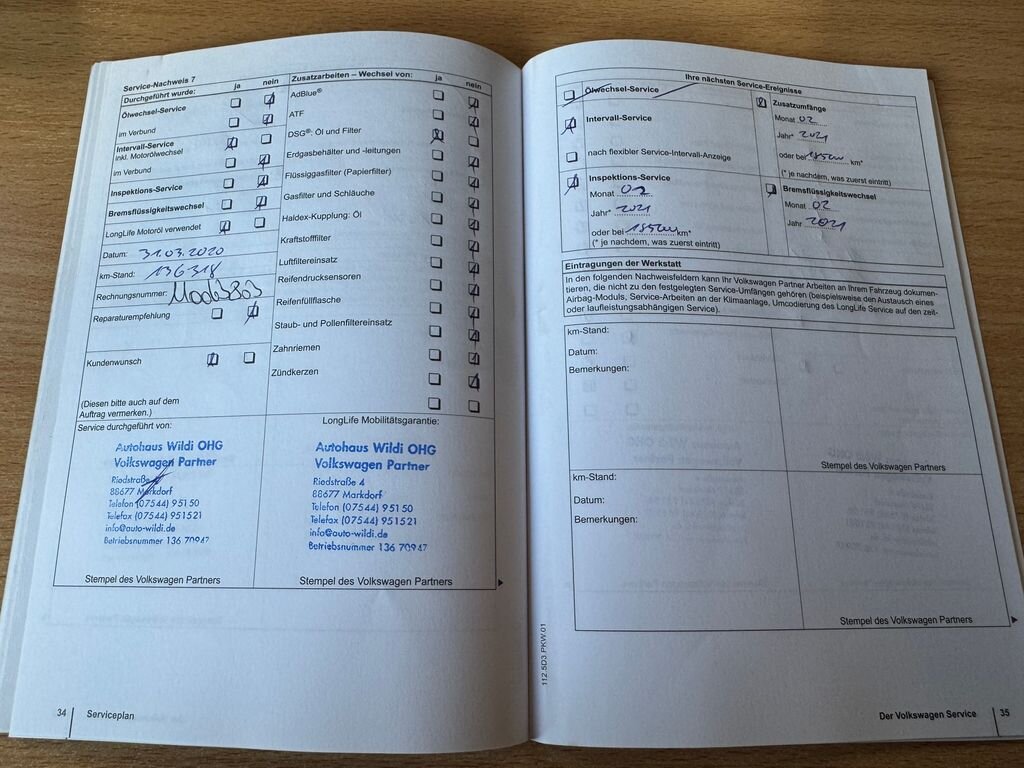 Service-Nachweis 7
Durchgeführt wurde: ja nein
Ölwechsel-Service
im Verbund
Intervall-Service
inkl. Motorölwechsel
im Verbund
Inspektions-Service
Bremsflüssigkeitswechsel
LongLife Motoröl verwendet
Datum: 31.03.2020
km-Stand: 136318
Rechnungsnummer:
Reparaturempfehlung
Kundenwunsch
(Diesen bitte auch auf dem
Auftrag vermerken.)
Zusatzarbeiten – Wechsel von: ja nein
AdBlue®
ATF
DSG®: Öl und Filter
Erdgasbehälter und -leitungen
Flüssiggasfilter (Papierfilter)
Gasfilter und Schläuche
Haldex-Kupplung: Öl
Kraftstofffilter
Luftfiltereinsatz
Reifendrucksensoren
Reifenfüllflasche
Staub- und Pollenfiltereinsatz
Zahnriemen
Zündkerzen
Service durchgeführt von:
Autohaus Wildi OHG
Volkswagen Partner
Riedstraße 4
88677 Markdorf
Telefon (07544) 951 50
Telefax (07544) 951521
info@auto-wildi.de
Betriebsnummer 136 70947
Stempel des Volkswagen Partners
LongLife Mobilitätsgarantie:
Autohaus Wildi OHG
Volkswagen Partner
Riedstraße 4
88677 Markdorf
Telefon (07544) 951 50
Telefax (07544) 951521
info@auto-wildi.de
Betriebsnummer 136 70947
Stempel des Volkswagen Partners
34 Serviceplan
Ihre nächsten Service-Ereignisse
Ölwechsel-Service
Intervall-Service
nach flexibler Service-Intervall-Anzeige
Inspektions-Service
Monat
Jahr* 2021
oder bei km*
(* je nachdem, was zuerst eintritt)
Zusatzumfänge
Monat 02
Jahr* 2021
oder bei km*
(* je nachdem, was zuerst eintritt)
Bremsflüssigkeitswechsel
Monat 02
Jahr 2021
Eintragungen der Werkstatt
In den folgenden Nachweisfeldern kann Ihr Volkswagen Partner Arbeiten an Ihrem Fahrzeug dokumen-
tieren, die nicht zu den festgelegten Service-Umfängen gehören (beispielsweise den Austausch eines
Airbag-Moduls, Service-Arbeiten an der Klimaanlage, Umcodierung des LongLife Service auf den zeit-
oder laufleistungsabhängigen Service).
km-Stand:
Datum:
Bemerkungen:
Stempel des Volkswagen Partners
km-Stand:
Datum:
Bemerkungen:
Stempel des Volkswagen Partners
112.5D3.PKW.01
Der Volkswagen Service 35